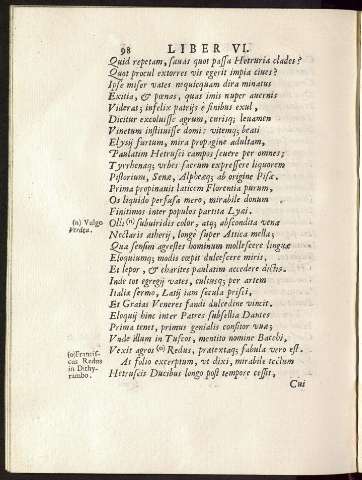 98 LIBER VI.
Quid repetam, sæuas quot passa Hetruria clades?
Quot procul extorres vis egerit impia ciues?
Ipse miser vates nequicquam dira minatus
Exitia, & pœnas, quas imis nuper auernis
Viderat; infelix patrijs è finibus exul,
Dicitur excoluisse agrum, curisq; leuamen
Vinetum instituisse domi: vitemq; beati
Elysij furtum, mira propagine adultam,
Paulatim Hetrusci campis seuere per omnes;
Tyrrhenæq; vrbes sacrum expressere liquorem
Pistorium, Senæ, Alphææq; ab origine Pisæ.
Prima propinauit laticem Florentia purum,
Os liquido perfusa mero, mirabile donum
Finitimos inter populos partita Lyæi.
(n) Vulgo Verdea.
Olli (n) subuiridis color, atq; abscondita vena
Nectaris ætherij, longè super Attica mella;
Qua sensim agrestes hominum mollescere linguæ
Eloquiumq; modis cœpit dulcescere miris,
Et lepor, & charites paulatim accedere dictis.
Inde tot egregij vates, cultusq; per artem
Italiæ sermo, Latij iam sæcula prisci,
Et Graias Veneres fandi dulcedine vincit.
Eloquij hinc inter Patres subsellia Dantes
Prima tenet, primus genialis consitor vuæ;
Vnde illum in Tuscos, mentito nomine Bacchi,
(o) Franciscus Redus in Dithyrambo.
Vexit agros (o) Redus, prætextaq; fabula vero est.
At folio exceptum, vt dixi, mirabile tectum
Hetruscis Ducibus longo post tempore cessit,
Cui